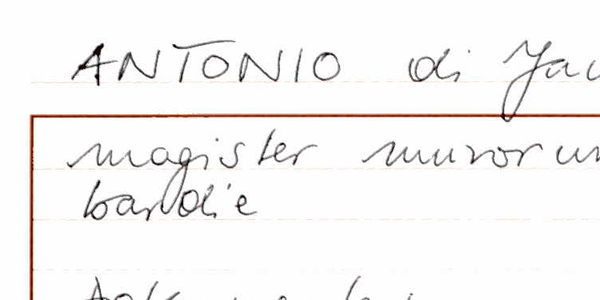 ANTONIO di Jac
magister murorum
bardie